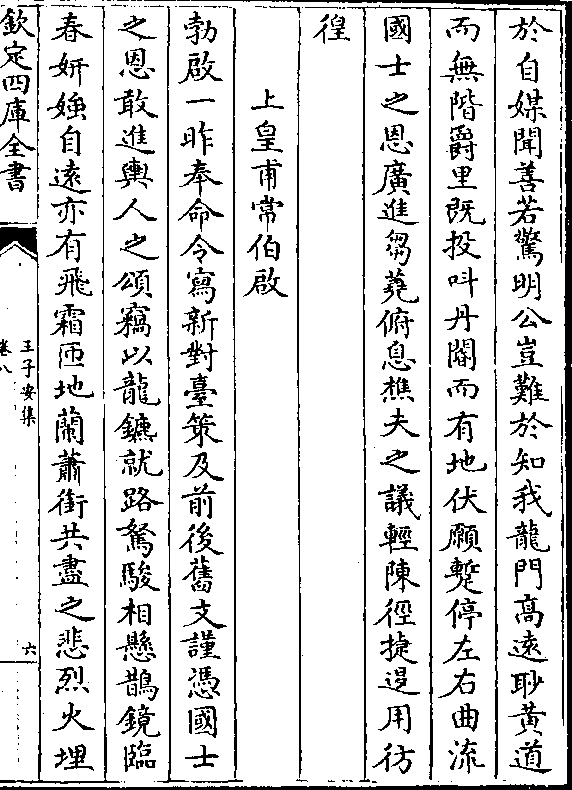 於自媒聞善若驚明公豈難於知我龍門高遠眇黄道
而無階爵里既投叫丹閽而有地伏願蹔停左右曲流
國士之恩廣進芻蕘俯息樵夫之議輕陳徑捷退用彷
徨
上皇甫常伯啟
勃啟一昨奉命令寫新對臺策及前後舊文謹憑國士
之恩敢進輿人之頌竊以龍鑣就路駑駿相懸鵲鏡臨
春妍媸自遠亦有飛霜匝地蘭蕭銜共盡之悲烈火埋
欽定四庫全書
王子安集
卷八
六